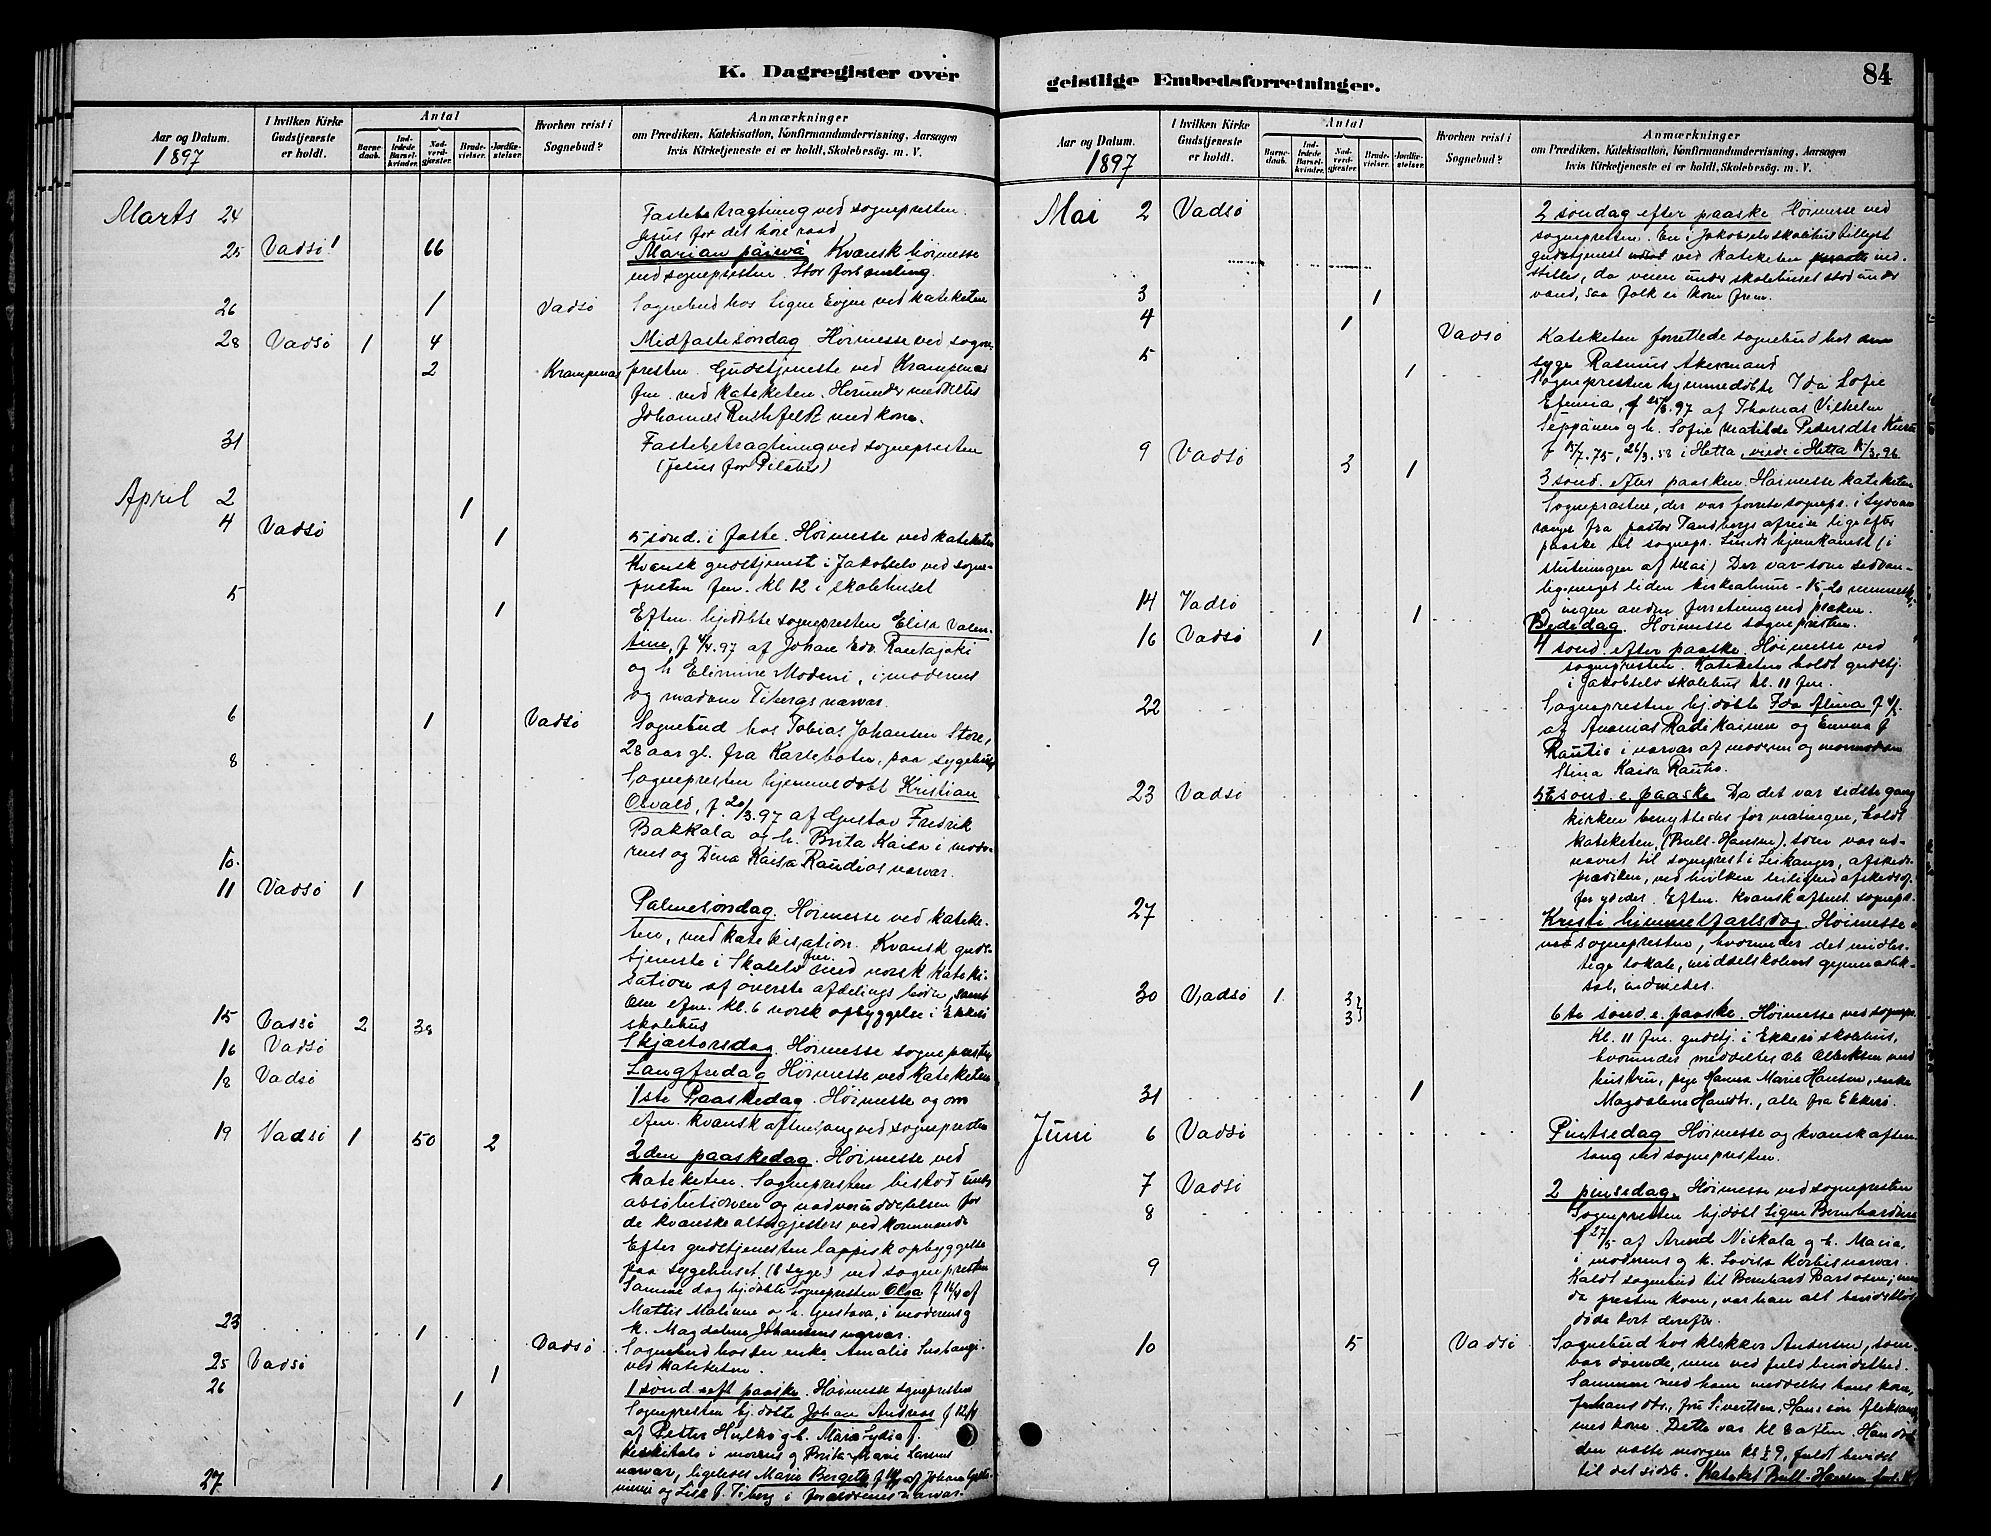 K. Dagregister over
Aar og Datum.
1897
I hvilken Kirke Gudstjeneste er holdt.
Antal
Barnedaab.
Indledede Barselkvinder.
Nadverdgjæster.
Brudevielser.
Jordfæstelser.
Hvorhen reist i Sognebud?
Anmærkninger
om Prædiken, Katekisation, Konfirmandundervisning, Aarsagen
hvis Kirketjeneste ei er holdt, Skolebesøg. m. V.
Marts 24 Fastebetragtning ved sognepresten.
Jesus for det høie raad
25 Vadsø! 66 Marian päivä Kvænsk høimesse
ved sognepresten. Stor forsamling.
26 1 Vadsø Sognebud hos Signe ved kateketen
28 Vadsø 1 4 Midfastesøndag Høimesse ved sogne-
2 Krampenæs presten. Gudstjeneste ved Krampenæs
fm. ved kateketen. Herunder meddeltes
Johannes med kone.
31 Fastebetragtning ved sognepresten
(Jesus for Pilatus)
April 2 1
4 Vadsø 1 5 sønd. i faste. Høimesse ved kateketen
Kvænsk gudstjenest i Jakobselv ved sogne-
presten fm. kl 12 i skolehuset
5 1 Eftm. hjdøbte sognepresten Elisa Valen-
tine, f 4/4.97 af Johan Edv. Rautajoki
og h. i moderens
og madame Tibergs nærvær.
6 1 Vadsø Sognebud hos Tobias Johansen Store,
28 aar gl. fra Karlebotn, paa sygehus
8 Sognepresten hjemmedøbt Kristian
Osvald, f. 20/3.97 af Gustav Fredrik
Bakkala og h. Brita Kaisa i mode-
rens og Dina Kaisa Raudios nærvær.
10.
11 Vadsø 1 Palmesøndag. Høimesse ved kateke-
ten, med katekisation. Kvænsk guds-
tjeneste i Skalelv fm. med norsk kateki-
sation af øverste afdelings børn, samt
Om efm. kl. 6 norsk opbyggelse i Ekkerø
skolehus
15 Vadsø 2 38 Skjærtorsdag. Høimesse sognepresten
16 Vadsø Langfredag Høimesse ved kateketen
18 Vadsø 1ste Paaskedag. Høimesse og om
efm. kvænsk aftensang ved sognepresten
19 Vadsø 1 50 2 2den paaskedag. Høimesse ved
kateketen. Sognepresten bestod under
absolutionen og nadveruddelelsen for
de kvænske altergjesters vedkommende
Efter gudstjenesten lappisk opbyggelse
paa sygehuset (8 syge) ved sognepresten
Samme dag hjdøbte Sognepresten Olga f 14/4 af
Mattis og h. Gustava, i moderens og
k. Magdalena Johansens nærvær.
23 1 Vadsø Sognebud hos enke Amalie
ved kateketen.
25 Vadsø 1 1 sønd eft paaske. Høimesse sognepresten
26 1 Sognepresten hj.døbte Johan Andreas f 12/4
af Petter og h. Maria Lydia f.
i morens og Brita Marie
nærvær, ligeledes Marie af Johan
27 1 og Lisa f. Tiberg i forældrenes nærvær.
geistlige Embedsforretninger.
84
Aar og Datum.
1897
I hvilken Kirke Gudstjeneste er holdt.
Antal
Barnedaab.
Indledede Barselkvinder.
Nadverdgjæster.
Brudevielser.
Jordfæstelser.
Hvorhen reist i Sognebud?
Anmærkninger
om Prædiken, Katekisation, Konfirmandundervisning, Aarsagen
hvis Kirketjeneste ei er holdt, Skolebesøg. m. V.
Mai 2 Vadsø 2 søndag efter paaske Høimesse ved
sognepresten. En i Jakobselv skolehus tillyst
gudstjenest ved kateketen ind-
stilles, da veien under skolehuset stod under
3 1 vand, saa folk ei kom frem.
4 1 Vadsø Kateketen forrettede sognebud hos den
5 1 syge Rasmus Akermand
Sognepresten hjemmedøbte Ida Sofie
Efemia, f 25/3.97 af Thomas Vilhelm
Seppänen og h. Sofie Matilde Pedersdtr
f 15/7.75, 26/3.58 i Hetta, viede i Hetta 15/3.96
9 Vadsø 3 1 3 sønd. efter paasken. Høimesse kateketen
Sognepresten, der var forrette sognepr. i Sydva-
ranger fra pastor Tandbergs afreise lige efter
paaske til sognepr. hjemkomst (i
slutningen af Mai) Der var som sedvan-
lig meget liden kirkealmue - 15-20 mennesker,
og ingen andre forretninger end præken.
14 Vadsø 1 Bededag. Høimesse sognepresten.
16 Vadsø 1 4 sønd. efter paaske. Høimesse ved
sognepresten. Kateketen holdt gudstj.
i Jakobselv skolehus kl. 11 fm.
22 Sognepresten hj.døbte Ida Alina
af Ananias Radikainen og Emma f
Rautio i nærvær af moderen og mormoderen
Stina Kaisa Rautio.
23 Vadsø 5te sønd. e. paaske. Da det var sidste gang
kirken benyttedes før restingen, holdt
kateketen, (Bull-Hansen), som var ud-
nævnt til sogneprest i Leikanger, afskeds-
prædiken, ved hvilken leilighed afskedsof-
fer ydedes. Eftm. kvænsk aftens. sognepr.
27 Kristi himmelfartsdag. Høimesse
ved sognepresten, hvorunder det midler-
tige lokale, middelskolens gymnastik-
sal, indviedes.
30 Vadsø 1 3 3 6te sønd. e. paaske. Høimesse ved sognepr.
Kl. 11 fm. gudstj. i Ekkerø skolehus,
hvorunder meddeltes Ole Albriktsen med
hustru, pige Hanna Marie Hansen, enke
Magdalene Hansdtr., alle fra Ekkerø.
31 1
Juni 6 Vadsø Pintsedag Høimesse og kvænsk aften-
sang ved sognepresten.
7 Vadsø 2 pinsedag. Høimesse ved sognepresten
8 Sognepresten hj.døbt Signe Bernhardine
f 27/5 af Arvid Niskala og h. Maria,
i moderens og k. Lovisa nærvær.
9 Kaldt sognebud til Bernhard, men
da presten kom, var han alt bevidstløs
døde kort derefter.
10 5 Vadsø Sognebud hos klokker Andersen, som
var døende, men ved fuld bevidsthed.
Sammen med ham meddeltes hans kone,
fru Sivertsen, Hans søn Aleksander
med kone. Dette var kl 8 aften. Han døde
den næste morgen kl ½ 9, fuldt bevidst
til det sidste. Kateket Bull-Hansen